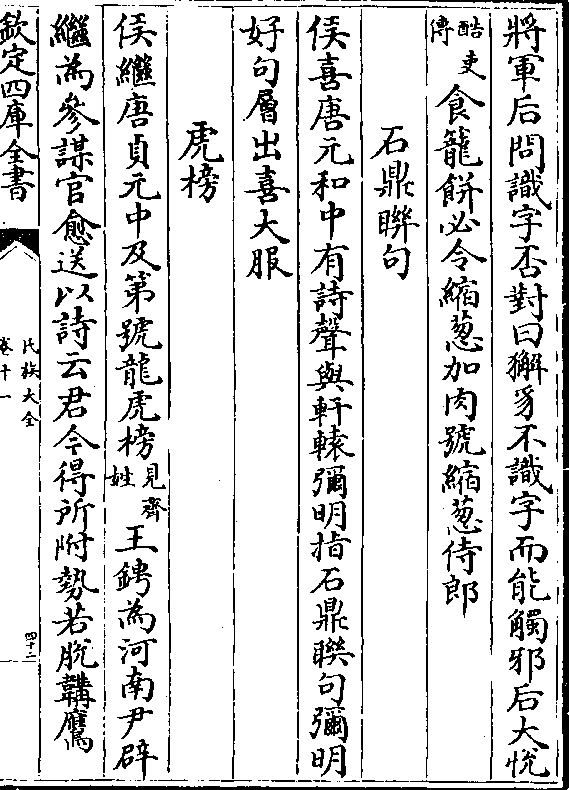 將軍后問識字否對曰獬豸不識字而能觸邪后大悦
酷吏傳食籠餅必令縮葱加肉號縮葱侍郎
石鼎聮句
侯喜唐元和中有詩聲與軒轅彌明指石鼎聮句彌明
好句層出喜大服
虎榜
侯繼唐貞元中及第號龍虎榜見齊姓王鍔為河南尹辟
繼為參謀官愈送以詩云君今得所附勢若脱韝鷹
欽定四庫全書
氏族大全
卷十一
四十二